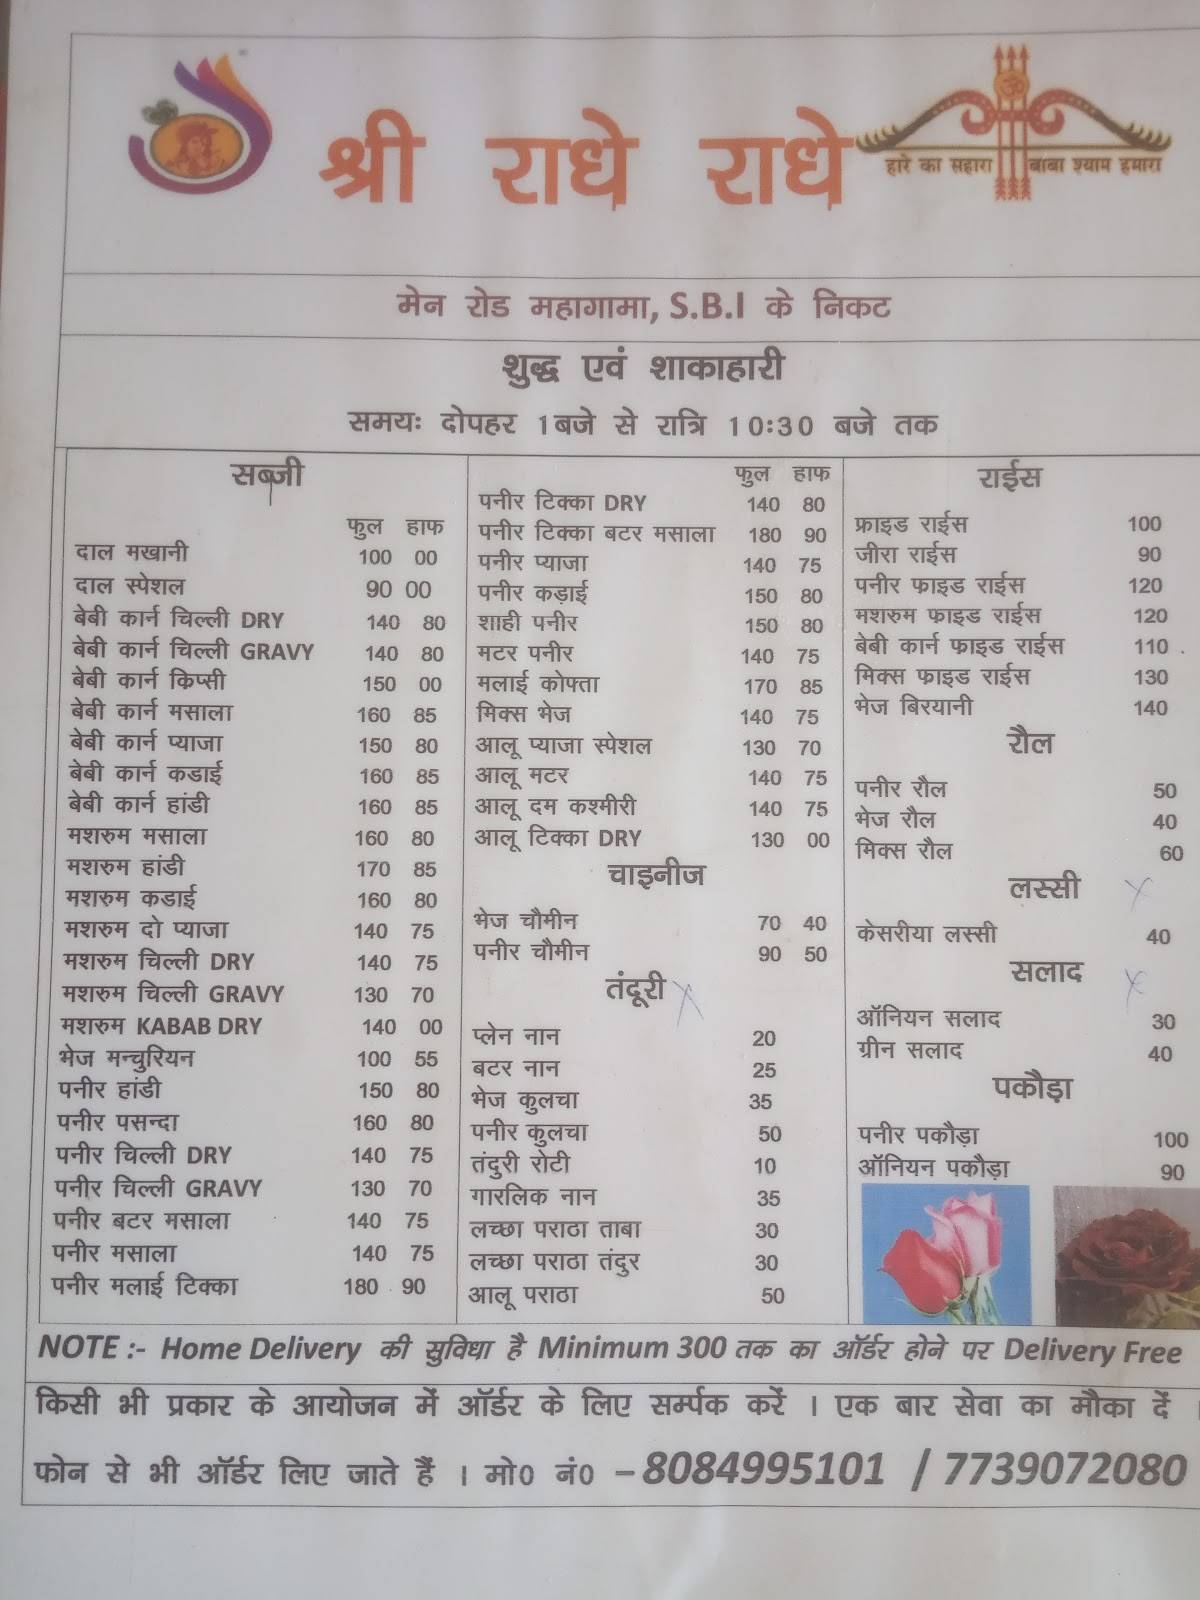 श्री राधे राधे
हारे का सहारा बाबा श्याम हमारा
मेन रोड महागामा, S.B.I के निकट
शुद्ध एवं शाकाहारी
समयः दोपहर 1बजे से रात्रि 10:30 बजे तक
सब्जी
फुल हाफ
दाल मखानी 100 00
दाल स्पेशल 90 00
बेबी कार्न चिल्ली DRY 140 80
बेबी कार्न चिल्ली GRAVY 140 80
बेबी कार्न क्रिप्सी 150 00
बेबी कार्न मसाला 160 85
बेबी कार्न प्याजा 150 80
बेबी कार्न कडाई 160 85
बेबी कार्न हांडी 160 85
मशरुम मसाला 160 80
मशरुम हांडी 170 85
मशरुम कडाई 160 80
मशरुम दो प्याजा 140 75
मशरुम चिल्ली DRY 140 75
मशरुम चिल्ली GRAVY 130 70
मशरुम KABAB DRY 140 00
भेज मन्चुरियन 100 55
पनीर हांडी 150 80
पनीर पसन्दा 160 80
पनीर चिल्ली DRY 140 75
पनीर चिल्ली GRAVY 130 70
पनीर बटर मसाला 140 75
पनीर मसाला 140 75
पनीर मलाई टिक्का 180 90
फुल हाफ
पनीर टिक्का DRY 140 80
पनीर टिक्का बटर मसाला 180 90
पनीर प्याजा 140 75
पनीर कड़ाई 150 80
शाही पनीर 150 80
मटर पनीर 140 75
मलाई कोफ्ता 170 85
मिक्स भेज 140 75
आलू प्याजा स्पेशल 130 70
आलू मटर 140 75
आलू दम कश्मीरी 140 75
आलू टिक्का DRY 130 00
चाइनीज
भेज चौमीन 70 40
पनीर चौमीन 90 50
तंदूरी
प्लेन नान 20
बटर नान 25
भेज कुलचा 35
पनीर कुलचा 50
तंदुरी रोटी 10
गारलिक नान 35
लच्छा पराठा ताबा 30
लच्छा पराठा तंदुर 30
आलू पराठा 50
राईस
फ्राइड राईस 100
जीरा राईस 90
पनीर फाइड राईस 120
मशरुम फाइड राईस 120
बेबी कार्न फाइड राईस 110
मिक्स फाइड राईस 130
भेज बिरयानी 140
रौल
पनीर रौल 50
भेज रौल 40
मिक्स रौल 60
लस्सी
केसरीया लस्सी 40
सलाद
ऑनियन सलाद 30
ग्रीन सलाद 40
पकौड़ा
पनीर पकौड़ा 100
ऑनियन पकौड़ा 90
NOTE :- Home Delivery की सुविधा है Minimum 300 तक का ऑर्डर होने पर Delivery Free
किसी भी प्रकार के आयोजन में ऑर्डर के लिए सर्म्पक करें । एक बार सेवा का मौका दें ।
फोन से भी ऑर्डर लिए जाते हैं । मो0 नं0 – 8084995101 / 7739072080